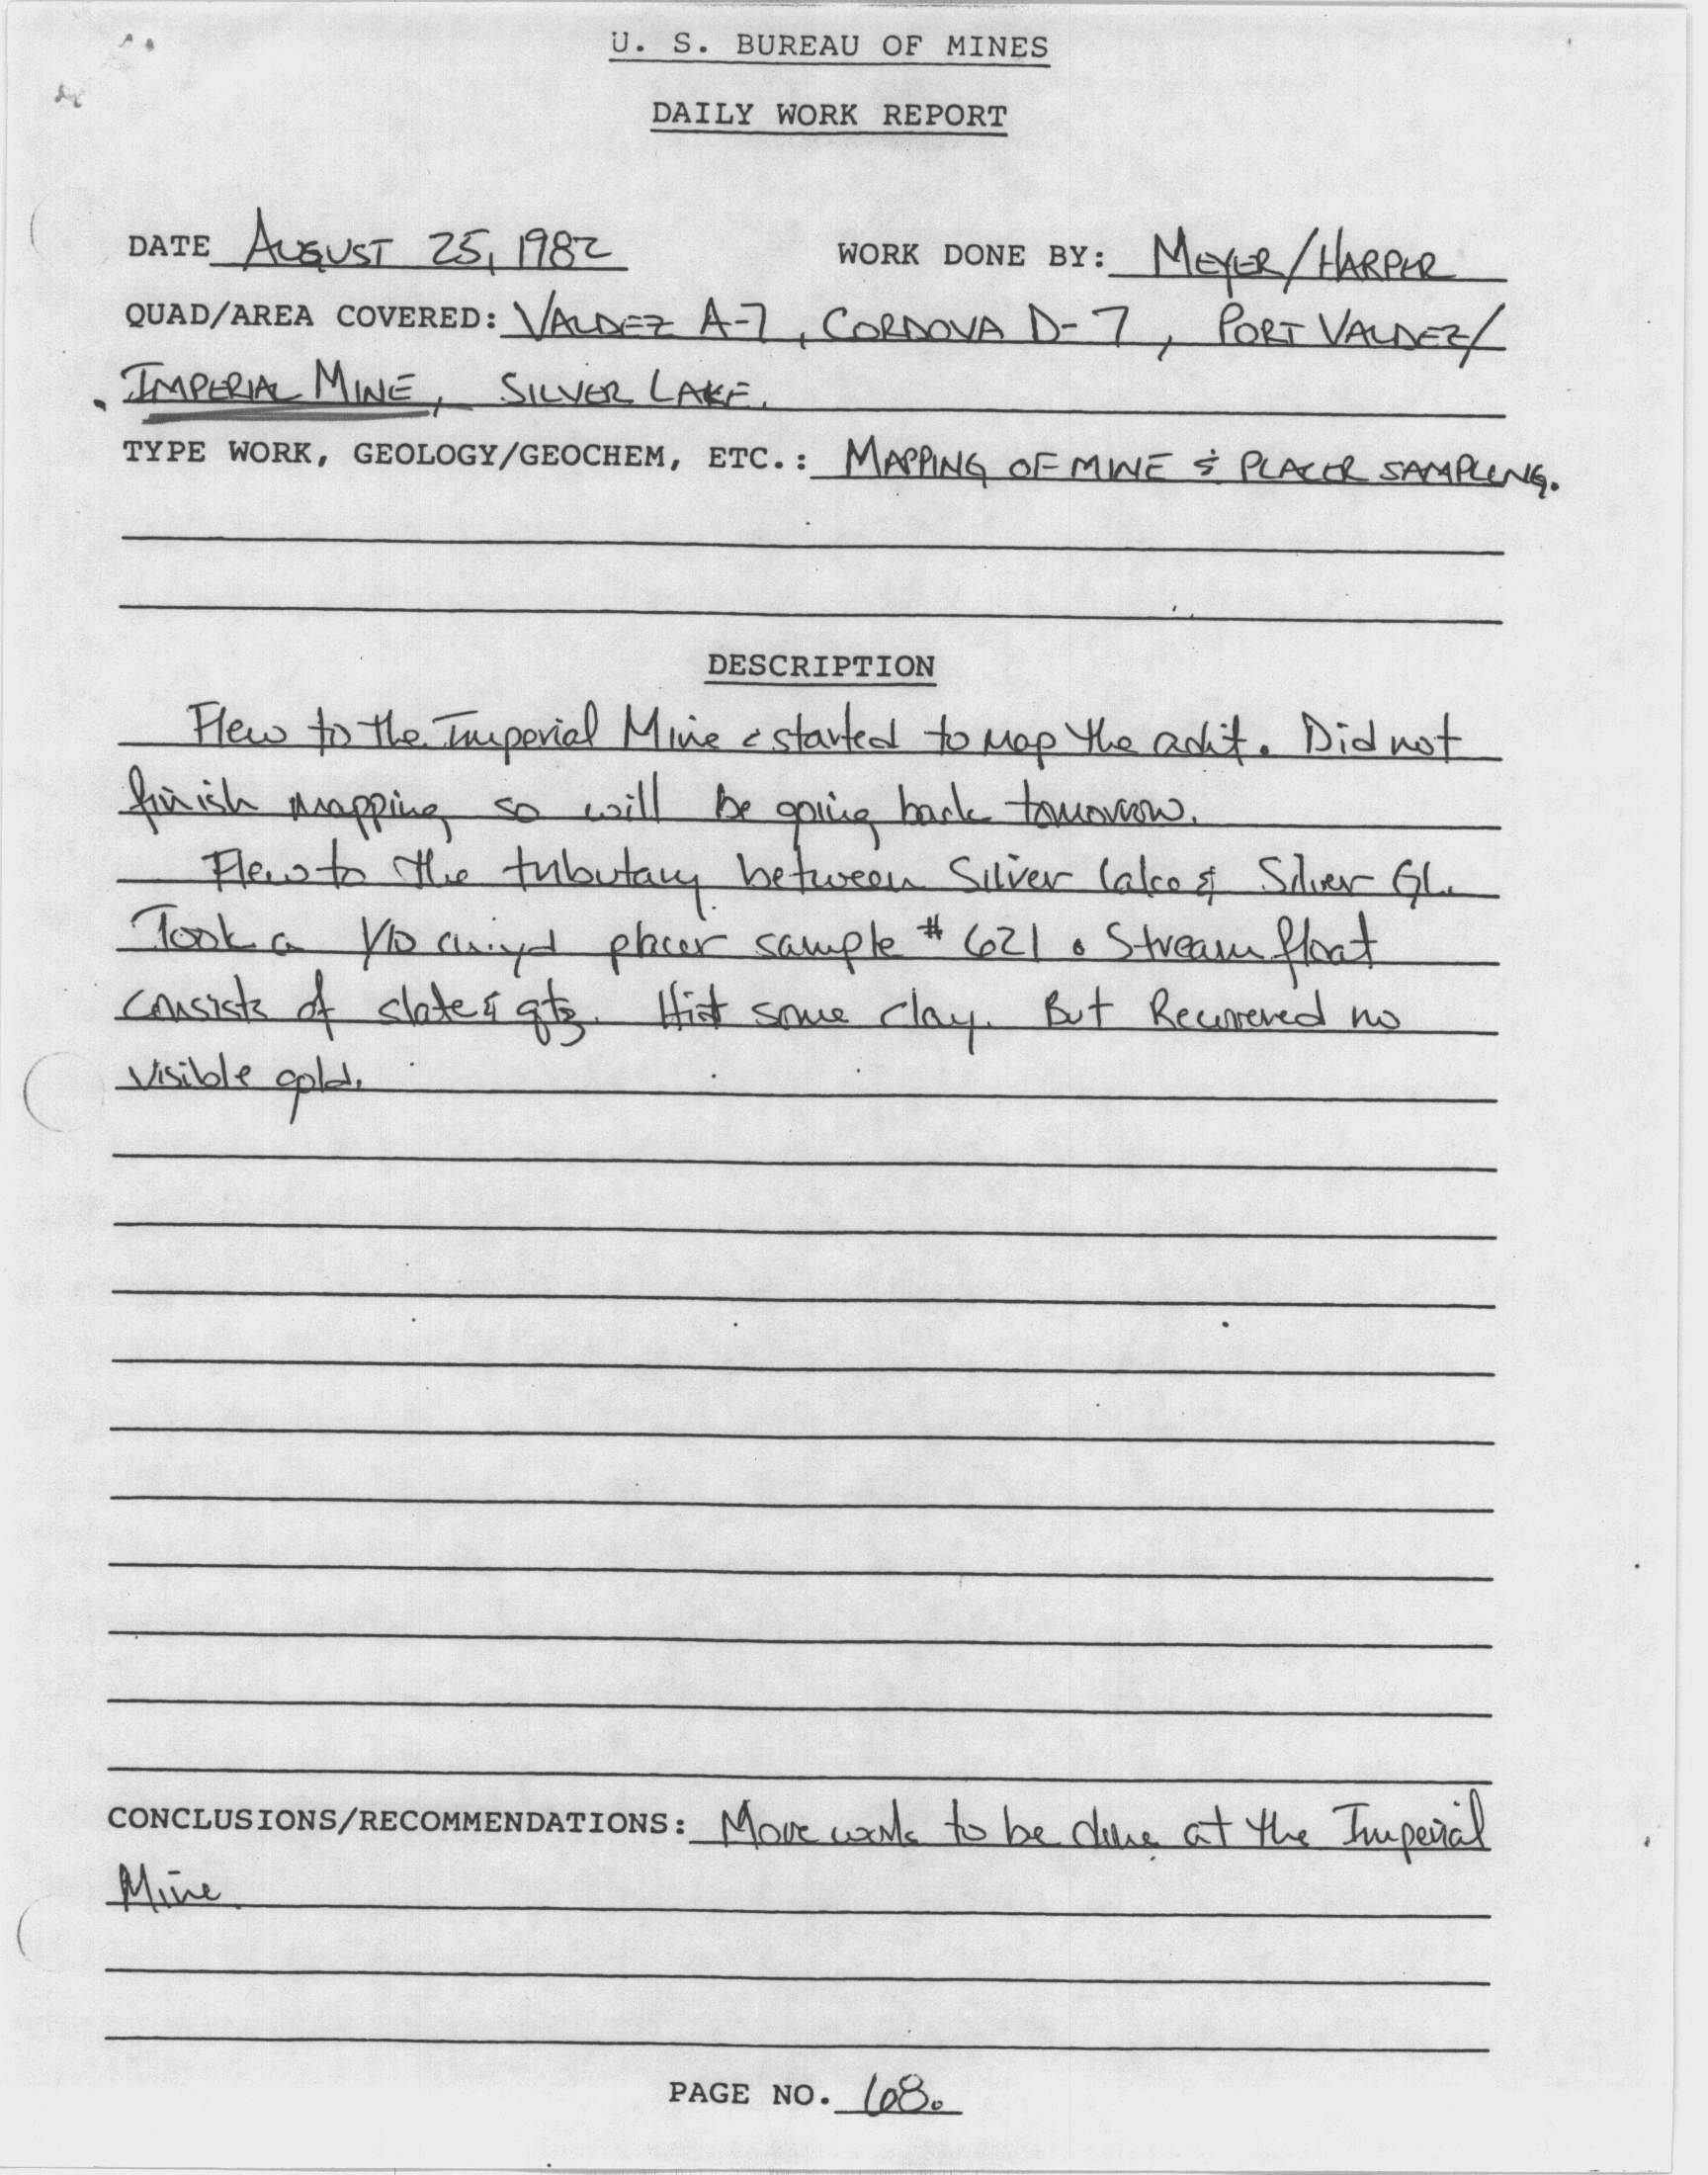 U. S. BUREAU OF MINES
DAILY WORK REPORT
DATE AUGUST 25, 1982 WORK DONE BY: MEYER/HARPER
QUAD/AREA COVERED: VALDEZ A-7, CORDOVA D-7, PORT VALDEZ/
IMPERIAL MINE, SILVER LAKE.
TYPE WORK, GEOLOGY/GEOCHEM, ETC.: MAPPING OF MINE & PLACER SAMPLING.
DESCRIPTION
Flew to the Imperial Mine & started to map the adit. Did not
finish mapping so will be going back tomorrow.
Flew to the tributary between Silver lake & Silver Gl.
Took a 1/10 cu. yd placer sample # 621. Stream float
consists of slate & qtz. Hit some clay. But Recovered no
visible gold.
CONCLUSIONS/RECOMMENDATIONS: More work to be done at the Imperial
Mine.
PAGE NO. 68.